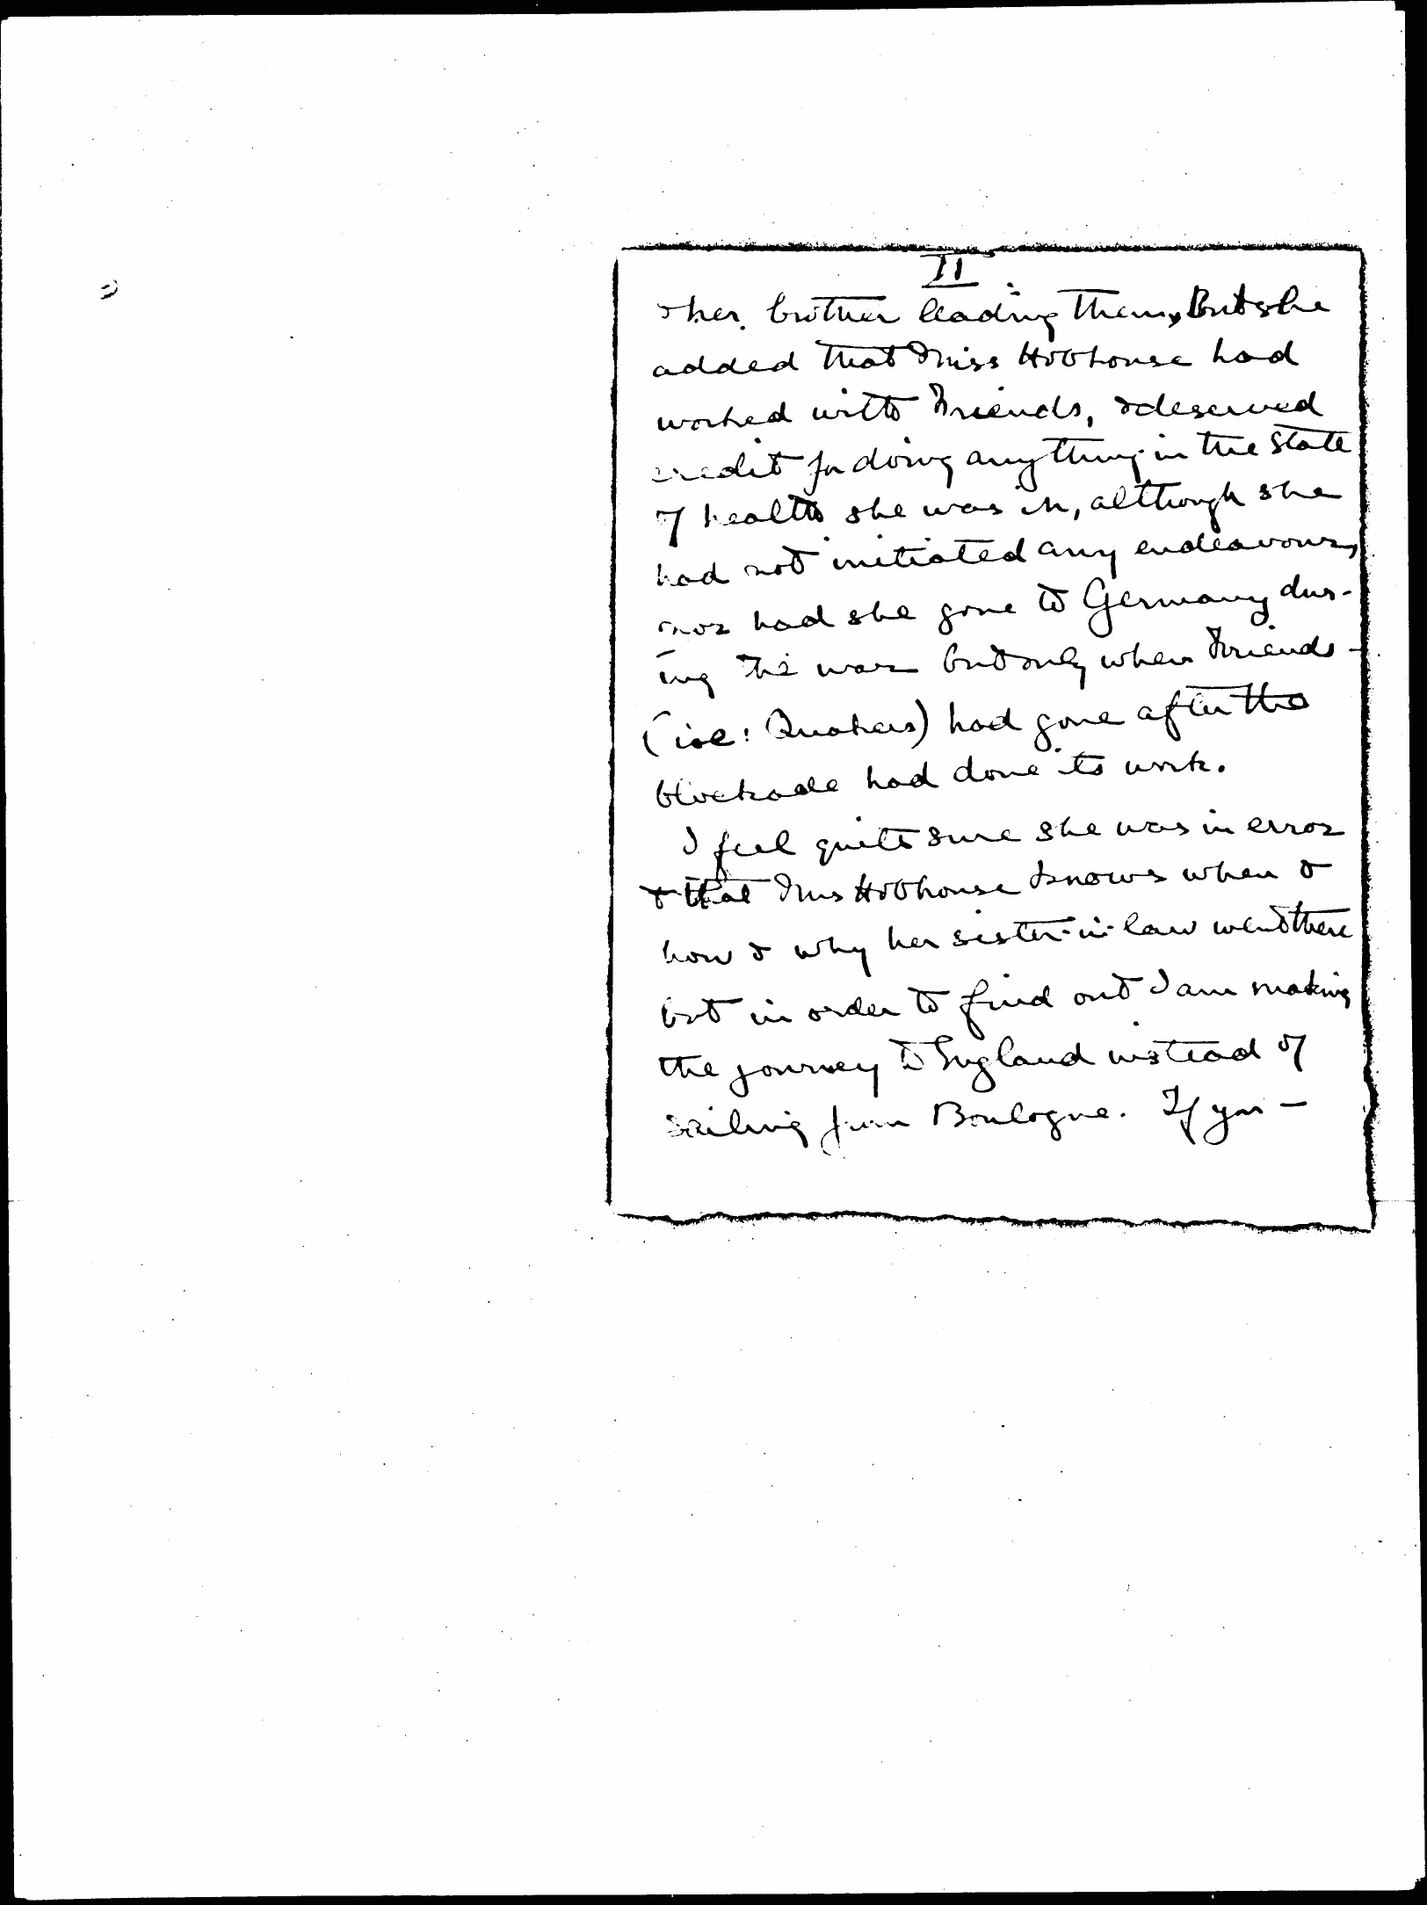 II
& her brother leading them, But she
added that Miss Hobhouse had
worked with Friends, & deserved
credit for doing anything in the state
of health she was in, although she
had not initiated any endeavours,
nor had she gone to Germany dur-
ing the war but only when Friends -
(i.e: Quakers) had gone after the
blockade had done its work.
I feel quite sure she was in error
& that Mrs Hobhouse knows when &
how & why her sister-in-law went there
but in order to find out I am making
the journey to England instead of
sailing from Boulogne. If you -